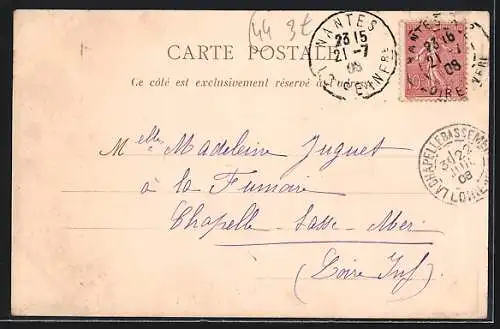 44 3t
CARTE POSTALE
Ce côté est exclusivement réservé à
NANTES
23 15
21 - 7
08
LOIRE INFRE
NANTES
23 15
21 - 7
08
LOIRE
LA CHAPELLE BASSE MER
22
JUIL
08
LOIRE
Melle Madeleine Juguet
à la
Chapelle Basse-Mer
(Loire Inf)